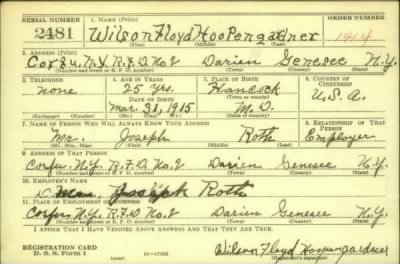 SERIAL NUMBER 1. NAME (Print) ORDER NUMBER
2481 Wilson Floyd Hoopengardner 1414
(First) (Middle) (Last)
2. ADDRESS (Print)
Corfu, N.Y. R.F.D. No. 2 Darien Genesee N.Y.
(Number and street or R. F. D. number) (Town) (County) (State)
3. TELEPHONE 4. AGE IN YEARS 5. PLACE OF BIRTH 6. COUNTRY OF CITIZENSHIP
none 25 yrs. Hancock U.S.A.
DATE OF BIRTH (Town or county)
Mar. 1915 M.D.
(Exchange) (Number) (Mo.) (Day) (Yr.) (State or country)
7. NAME OF PERSON WHO WILL ALWAYS KNOW YOUR ADDRESS 8. RELATIONSHIP OF THAT PERSON
Mr. Joseph Roth Employer
(Mr., Mrs., Miss) (First) (Middle) (Last)
9. ADDRESS OF THAT PERSON
Corfu, N.Y. R.F.D. No. 2 Darien Genesee N.Y.
(Number and street or R. F. D. number) (Town) (County) (State)
10. EMPLOYER'S NAME
Joseph Roth
11. PLACE OF EMPLOYMENT OR BUSINESS
Corfu, N.Y. R.F.D. No. 2 Darien Genesee N.Y.
(Number and street or R. F. D. number) (Town) (County) (State)
I AFFIRM THAT I HAVE VERIFIED ABOVE ANSWERS AND THAT THEY ARE TRUE.
REGISTRATION CARD
D. S. S. Form 1 (over) Wilson Floyd Hoopengardner
(Registrant's signature)